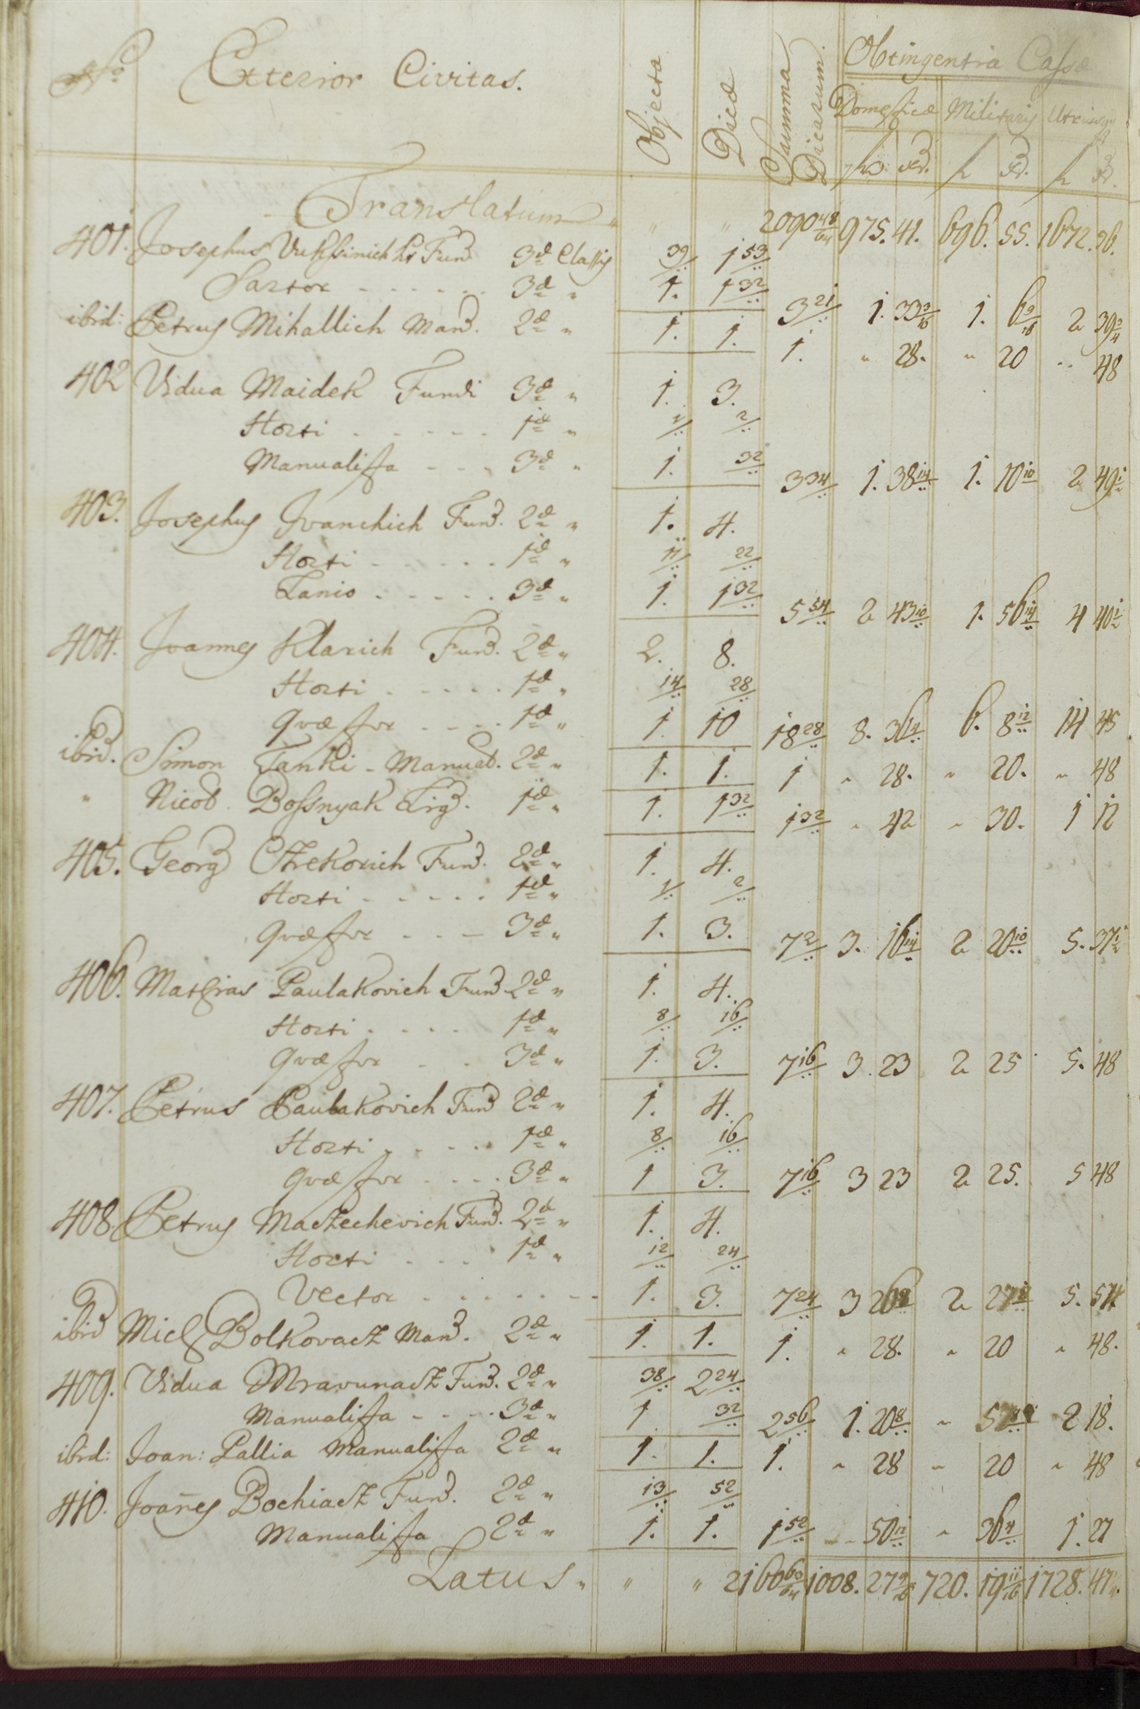 No Exterior Civitas. Objecta Dicæ Summa Dicarum. Obtingentia Cassæ
Domesticæ Militaris Utriusq
f xr. f xr. f xr.
Translatum " " " 2090 48/64 975. 41. 696. 55. 1672. 36.
401. Josephus Vuksinich Fund. 3æ Classis 39 1 53
Sartor - - - - - - 3æ " 1. 1 32 3 21 1. 33 9/16 1. 6 9/16 2 39 3/4
ibid: Petrus Mihallich Man. 2æ " 1. 1. 1. " 28. " 20 " 48
402 Vidua Maidek Fundi 3æ " 1. 3.
Horti - - - - - 1æ " 1 2
Manualista - - - 3æ " 1. 32 3 34 1. 38 14 1. 10 10 2 49
403. Josephus Ivanchich Fund. 2æ " 1. 4.
Horti - - - - - 1æ " 11 22
Lanio - - - - - 3æ " 1. 1 32 5 54 2 43 10 1. 56 14 4 40
404. Joannes Klarich Fund. 2æ " 2. 8.
Horti - - - - - 1æ " 14 28
Quæstor - - - - 1æ " 1. 10 18 28 8. 36 4 6. 8 12 14 45
ibid. Simon Tanki - Manual. 2æ " 1. 1. 1 " 28. " 20. " 48
" Nicol. Bossnyak Lig. 1æ " 1. 1 32 1 32 " 42 " 30. 1 12
405. Georg Czrekovich Fund. 2æ " 1. 4.
Horti - - - - - 1æ " 1 2
Quæstor - - - 3æ " 1. 3. 7 2 3. 16 14 2 20 10 5. 37
406. Mathias Paulakovich Fund 2æ " 1. 4.
Horti - - - - 1æ " 8 16
Quæstor - - 3æ " 1. 3. 7 16 3. 23 2 25 5. 48
407. Petrus Paulakovich Fund 2æ " 1. 4.
Horti - - - - - 1æ " 8 16
Quæstor - - - - 3æ " 1 3. 7 16 3 23 2 25. 5 48
408 Petrus Maczechevich Fund. 2æ " 1. 4.
Horti - - - - 1æ " 12 24
Vector - - - - - - - 1. 3. 7 24 3 26 2 27 5. 54
ibid Mich Bolkovacz Man. 2æ " 1. 1. 1. " 28. " 20 " 48.
409. Vidua Mravunacz Fund. 2æ " 38 2 24
Manualista - - - - 3æ " 1 32 2 56 1. 20 8 " 2 18.
ibid: Joan: Pallia Manualista 2æ " 1. 1. 1. " 28 " 20 " 48
410. Joañes Bochiacz Fund. 2æ " 13 52
Manualista 2æ " 1. 1. 1 52 " 50 12 " 36 4 1. 27
Latus " " " 2160 60/64 1008. 27 720. 19 11/16 1728. 47